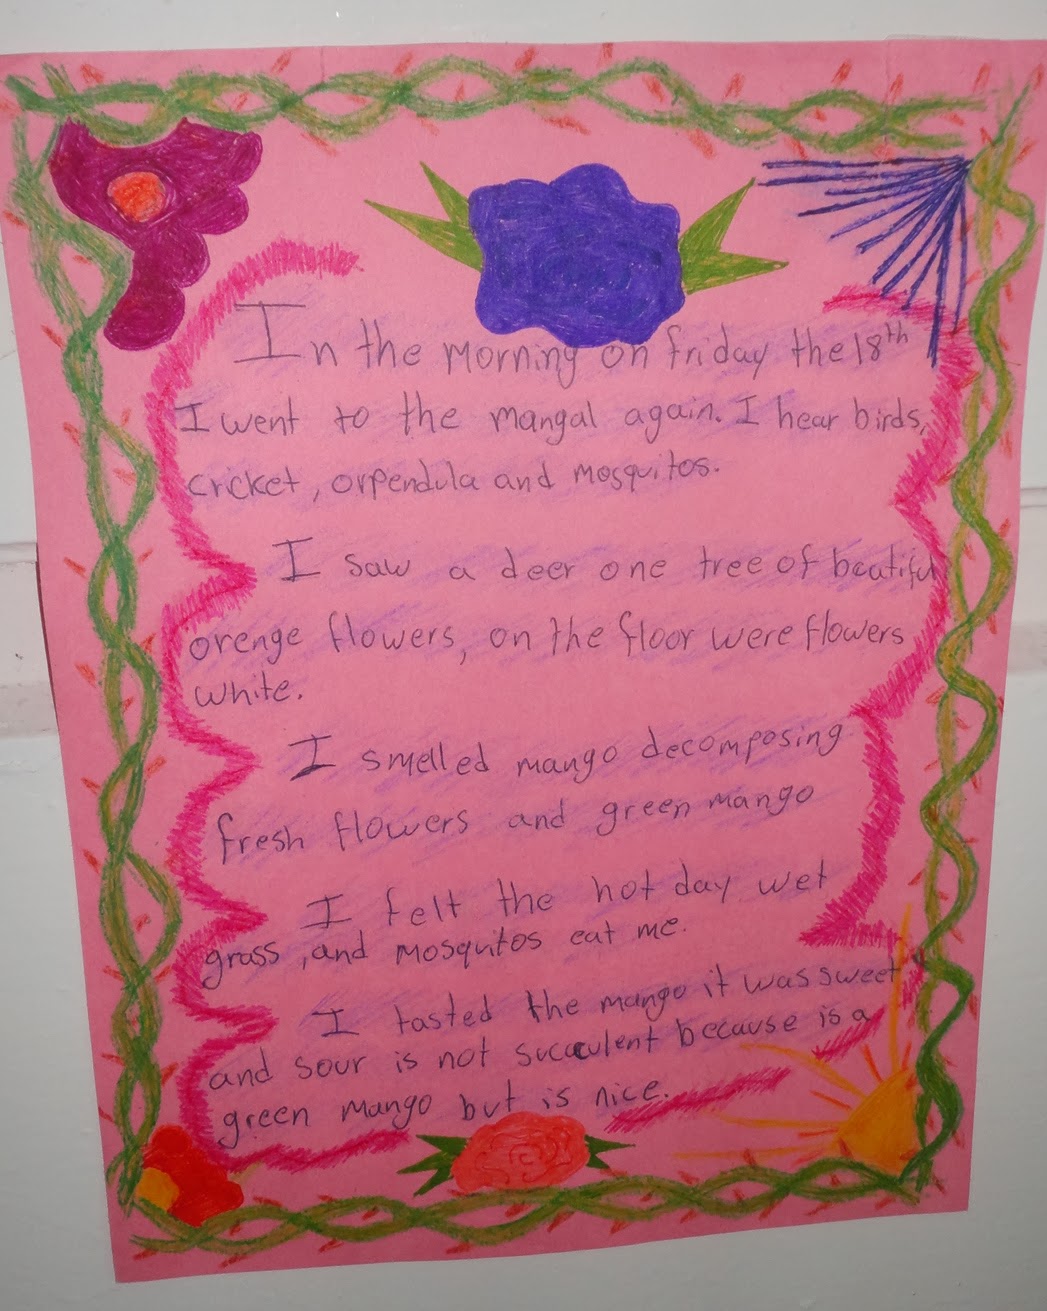 In the morning on friday the 18th
I went to the mangal again. I hear birds,
cricket, orpendula and mosquitos.
I saw a deer one tree of beatiful
orenge flowers, on the floor were flowers
white.
I smelled mango decomposing
fresh flowers and green mango
I felt the hot day wet
grass, and mosquitos eat me.
I tasted the mango it was sweet
and sour is not succulent because is a
green mango but is nice.